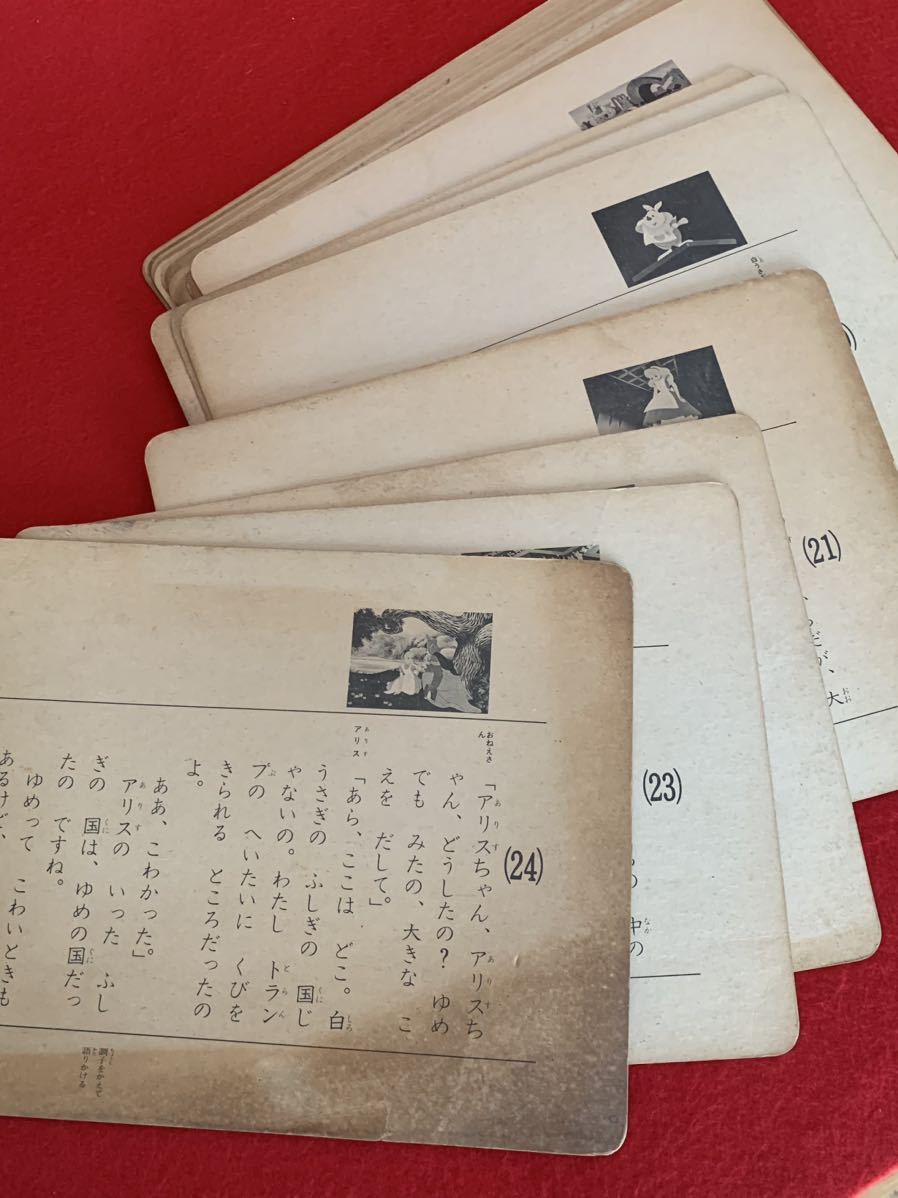 (24)
おねえさん
「アリスちゃん、アリスち
ゃん、どうしたの？　ゆめ
でも　みたの、大きな　こ
えを　だして。」
アリス
「あら、ここは　どこ。白
うさぎの　ふしぎの　国じ
ゃないの。わたし　トラン
プの　へいたいに　くびを
きられる　ところだったの
よ。
ああ、こわかった。」
アリスの　いった　ふし
ぎの　国は、ゆめの国だっ
たの　ですね。
ゆめって　こわいときも
あるけど、
調子をかえて
語りかける
(23)
中の
の
(21)
だが、
大